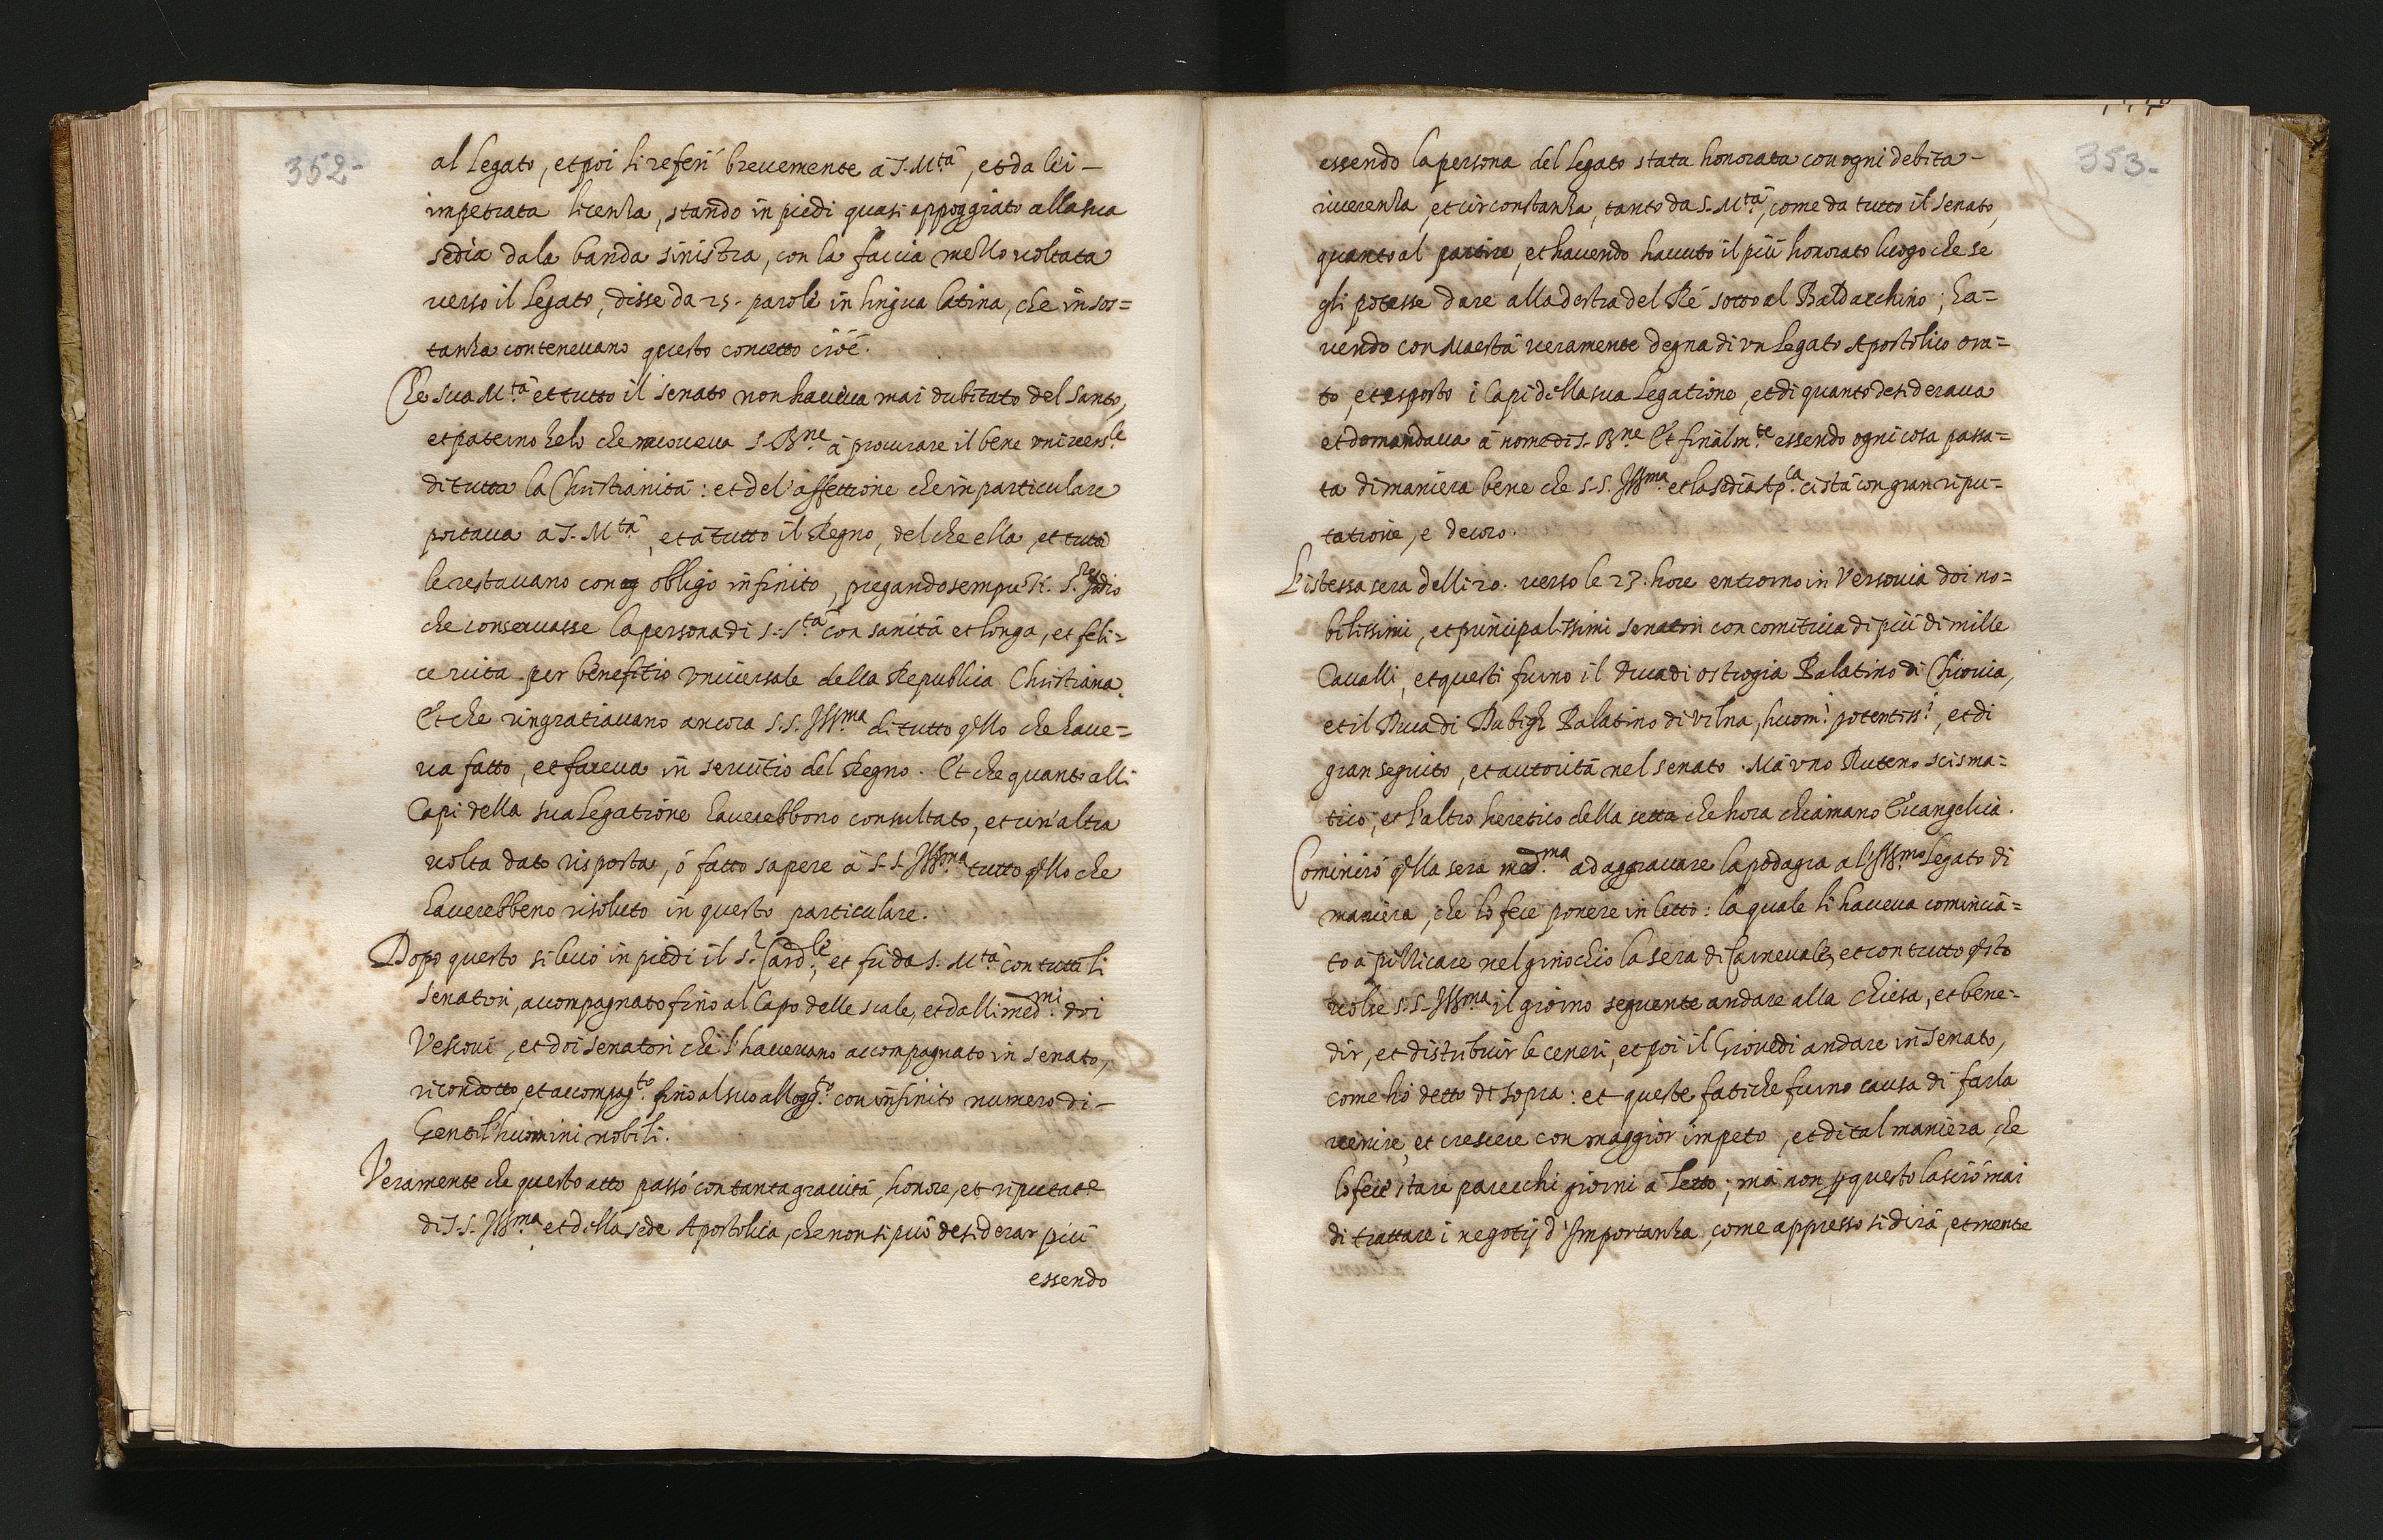 352-
al Legato, et poi li referì brevemente à S. M.tà, et da lei -
impetrata licenza, stando in piedi quasi appoggiato alla sua
sedia da la banda sinistra, con la faccia mezzo voltata
verso il Legato, disse da 25. parole in lingua latina, che in sos=
tanza contenevano questo concetto cioè.
Che sua M.tà et tutto il senato non haveva mai dubitato del santo,
et paterno zelo che moveva S. B.ne à procurare il bene univers.le
di tutta la Christianità: et del'affettione che in particulare
portava à S. M.tà, et à tutto il Regno, del che ella, et tutti
le restavano con obligo infinito, pregando sempre N. S.re Iddio
che conservasse la persona di S. S.tà con sanità et longa, et feli=
ce vita per benefitio universale della Republica Christiana.
Et che ringratiavano ancora S.S. Ill.ma di tutto q̃llo che have=
va fatto, et faceva in servitio del Regno. Et che quanto alli
Capi della sua Legatione haverebbono consultato, et un'altra
volta dato risposta, ò fatto sapere à S.S. Ill.ma tutto q̃llo che
haverebbeno risoluto in questo particulare.
Dopo questo si levò in piedi il S.r Card.le, et fu da S. M.tà con tutti li
senatori, accompagnato fino al Capo delle scale, et dalli med.mi doi
Vescovi, et doi senatori che l'havevano accompagnato in senato,
ricondotto et accompag.to fino al suo allogg.to con infinito numero di -
Gentil'huomini nobili.
Veramente che questo atto passò con tanta gravità, honore, et riputat.e
di S.S. Ill.ma et della sede Apostolica, che non si può desiderar più
essendo
353-
essendo la persona del Legato stata honorata con ogni debita -
riverenza, et circonstanza, tanto da S. M.tà, come da tutto il senato,
quanto al partire, et havendo havuto il più honorato luogo che se
gli potesse dare alla destra del Ré sotto al Baldacchino; ha=
vendo con Maestà veramente degna di un Legato Apostolico ora=
to, et esposto i Capi della sua Legatione, et di quanto desiderava
et domandava à nome di S. B.ne Et finalm.te essendo ogni cosa passa=
ta di maniera bene che S.S. Ill.ma et la sedia Ap.ca ci stà con gran ripu=
tatione, e decoro.
L'istessa sera delli 20. verso le 23. hore entrorno in Versovia doi no=
bilissimi, et principalissimi senatori con comitiva di più di mille
Cavalli, et questi furno il Duca di ostrogia Palatino di Chiovia,
et il Duca di Dubigh Palatino di vilna, huom.i potentiss.i, et di
gran seguito, et autorità nel senato. Mà uno Ruteno scisma=
tico, et l'altro heretico della setta che hora chiamano Evangelica.
Cominciò q̃lla sera med.ma ad aggravare la podagra al'Ill.mo Legato di
maniera, che lo fece ponere in letto: la quale li haveva comincia=
to à pizzicare nel ginochio la sera di Carnevale, et con tutto q̃sto
volse S.S. Ill.ma il giorno seguente andare alla chiesa, et bene=
dir, et distribuir le ceneri, et poi il Giovedi andare in Senato,
come hò detto di sopra: et queste fatiche furno causa di farla
venire, et crescere con maggior impeto, et di tal maniera, che
lo fece stare parecchi giorni à letto; mà non ꝑ questo lasciò mai
di trattare i negotij d'Importanza, come appresso si dirà, et mente